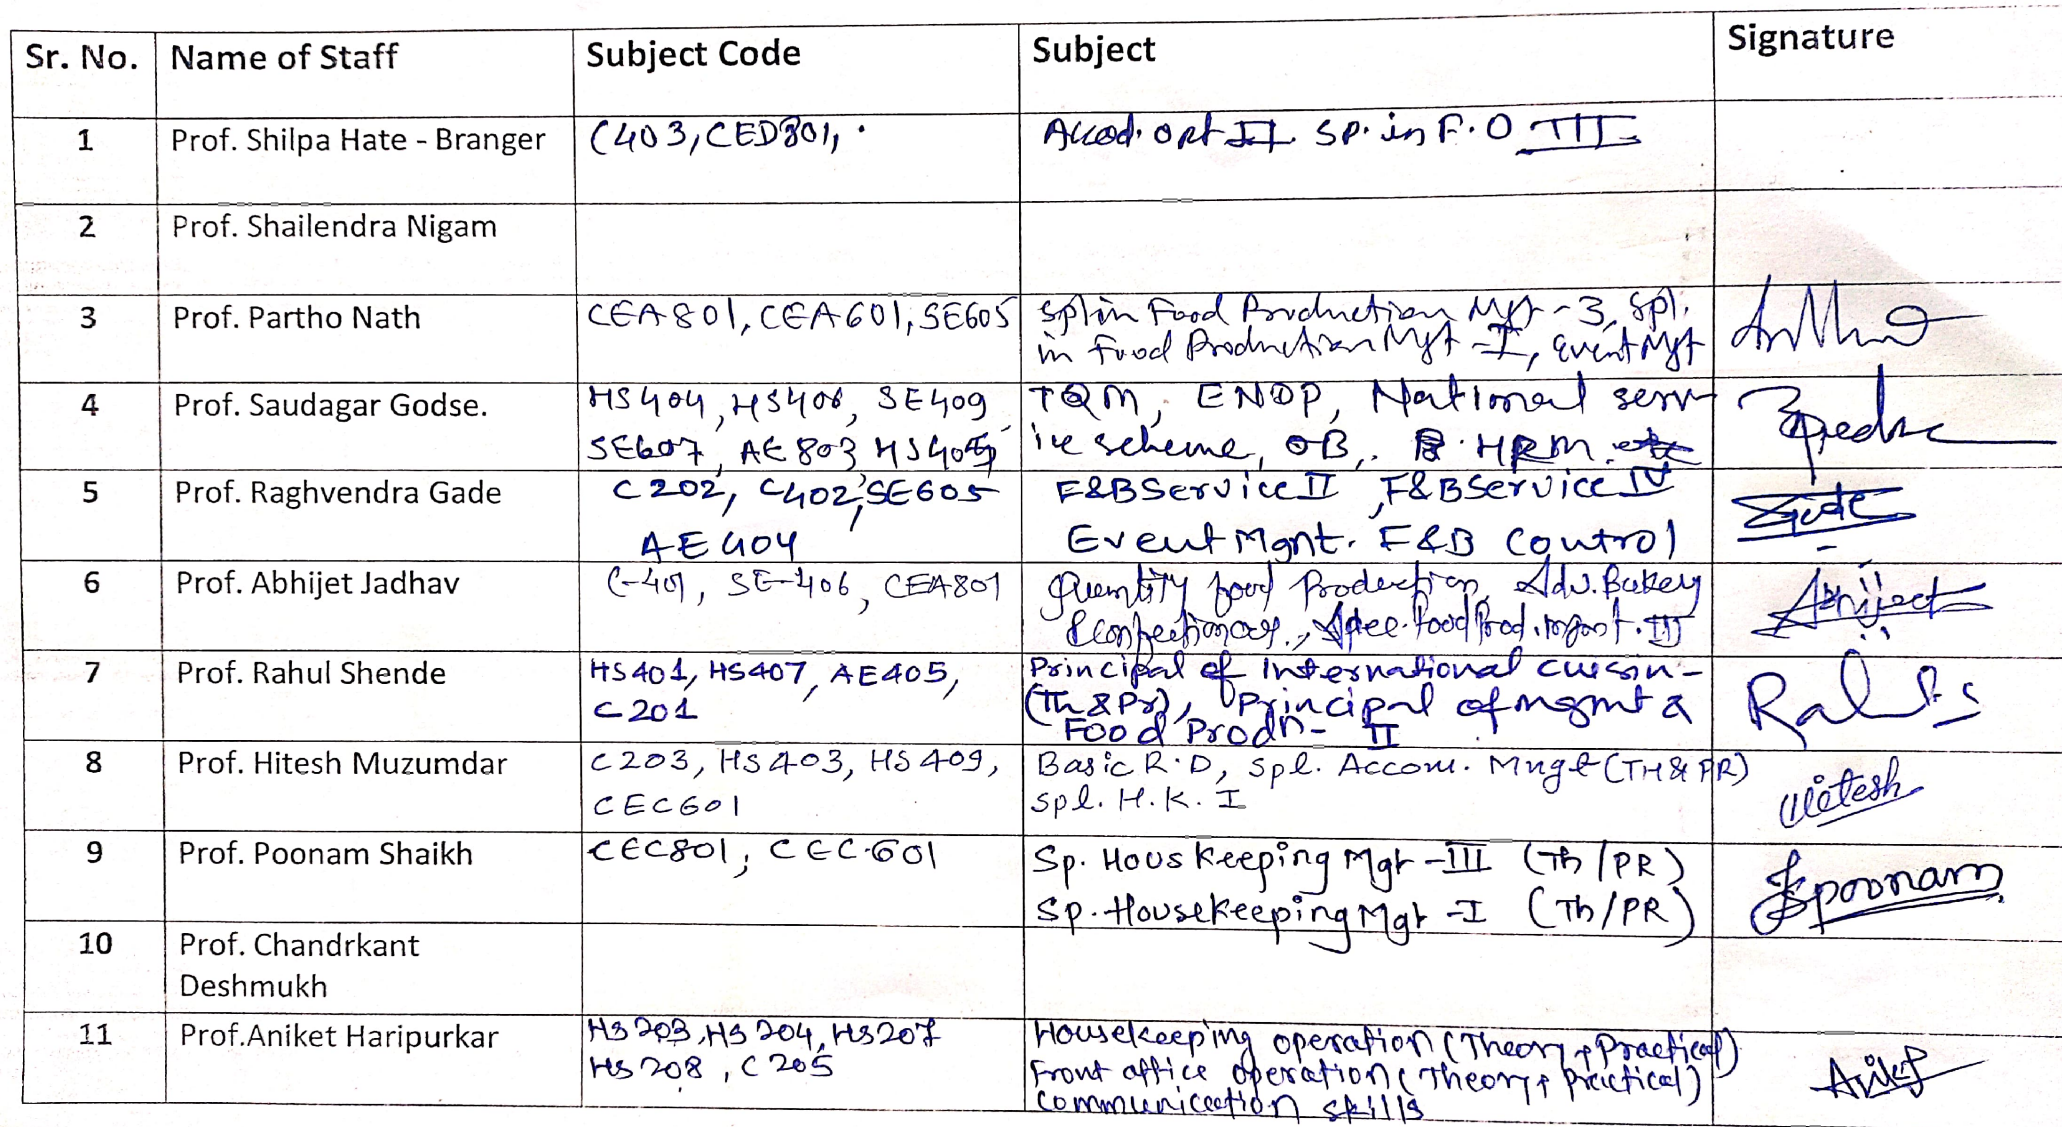 Sr. No. Name of Staff Subject Code Subject Signature
1 Prof. Shilpa Hate - Branger C403, CED801, Accod. opt II Sp. in F.O III
2 Prof. Shailendra Nigam
3 Prof. Partho Nath CEA801, CEA601, SE605 Spl in Food Production Mgt - 3, Spl.
in Food Production Mgt - I, Event Mgt
4 Prof. Saudagar Godse. HS404, HS406, SE409 TQM, ENDP, National serv
SE607, AE803 HS405 ice scheme, OB, HRM
5 Prof. Raghvendra Gade C202, C402, SE605 F&B Service II, F&B Service IV
AE404 Event Mgnt. F&B Control
Gade
6 Prof. Abhijet Jadhav C-401, SE-406, CEA801 Quantity food Production, Adv. Bakery
& Confectionary, Spee. Food Prod. mgmt. III
Abhijeet
7 Prof. Rahul Shende HS401, HS407, AE405, Principal of International cuisin-
C201 (Th & Pr), Principal of mgmt &
Food Prodn- II
Rahul S
8 Prof. Hitesh Muzumdar C203, HS403, HS409, Basic R.D, Spl. Accom. Mngt (TH & PR)
CEC601 Spl. H.K. I
Hitesh
9 Prof. Poonam Shaikh CEC801, CEC-601 Sp. Hous keeping Mgt - III (Th/PR)
Sp. Housekeeping Mgt - I (Th/PR)
Spoonam
10 Prof. Chandrkant
Deshmukh
11 Prof.Aniket Haripurkar HS203, HS204, HS207 Housekeeping operation (Theory & Practical)
HS208, C205 Front office operation (Theory & Practical)
Communication skills
Aniket